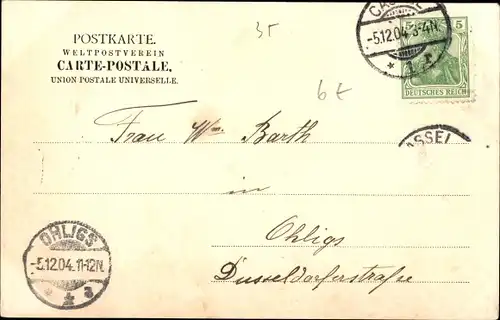 POSTKARTE.
WELTPOSTVEREIN
CARTE-POSTALE.
UNION POSTALE UNIVERSELLE.
35
6 t
CASSEL
-5.12.04 3-4N.
* 1 r
5 5
DEUTSCHES REICH
CASSEL
Frau Wm Barth
in
Ohligs
Dusseldorferstraße
OHLIGS
-5.12.04. 11-12N.
* a